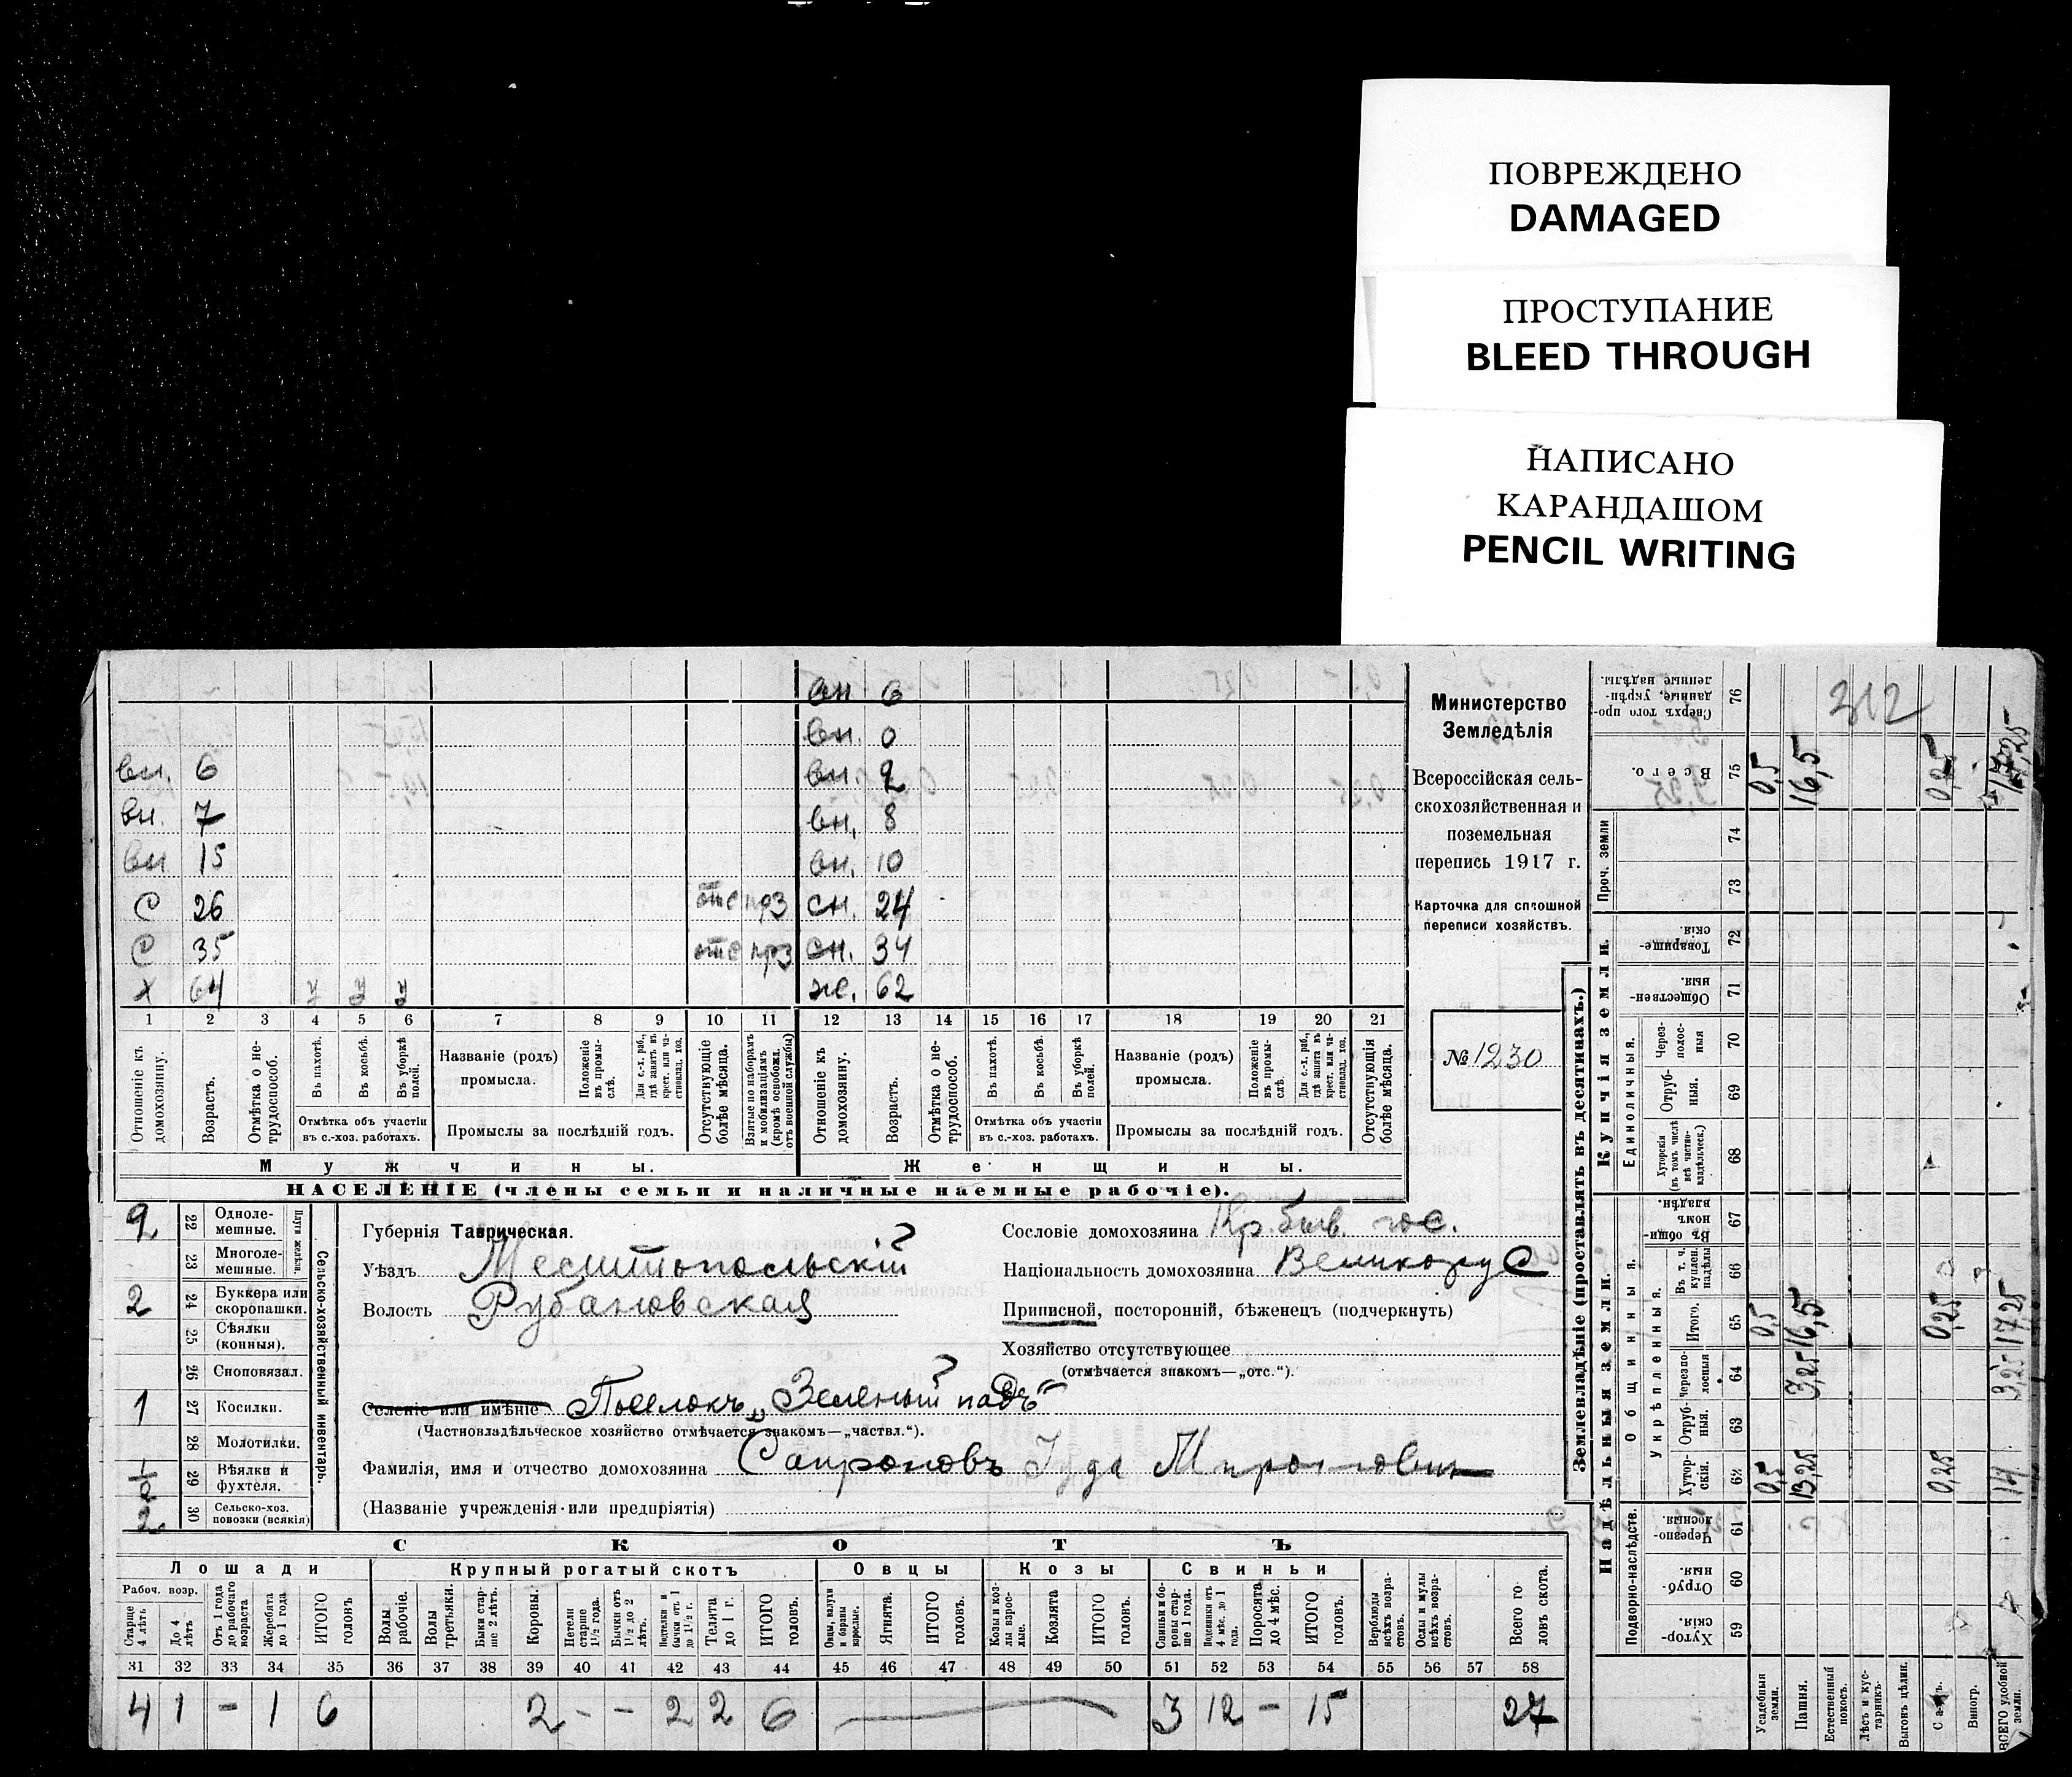 ПОВРЕЖДЕНО
DAMAGED
ПРОСТУПАНИЕ
BLEED THROUGH
НАПИСАНО
КАРАНДАШОМ
PENCIL WRITING
вн. 6
вн. 0
вн. 6 вн. 2
вн. 7 вн. 8
вн 15 вн. 10
С 26 отс прз сн. 24
С 35 отс прз сн. 34
Х 64 ж. 62
1 2 3 4 5 6 7 8 9 10 11 12 13 14 15 16 17 18 19 20 21
Отношеніе къ домохозяину.
Возрастъ.
Отмѣтка о не-трудоспособ.
Въ пахотѣ.
Въ косьбѣ.
Въ уборкѣ полей.
Отмѣтка объ участіи
въ с.-хоз. работахъ.
Названіе (родъ)
промысла.
Положеніе въ промы-слѣ.
Для с.-х. раб., гдѣ занятъ въ крест. или ча-стновлад. хоз.
Промыслы за послѣдній годъ.
Отсутствующіе болѣе мѣсяца.
Взятые по наборамъ и мобилизаціямъ (кромѣ освобожд. отъ военной службы)
Отношеніе къ домохозяину.
Возрастъ.
Отмѣтка о не-трудоспособ.
Въ пахотѣ.
Въ косьбѣ.
Въ уборкѣ полей.
Отмѣтка объ участіи
въ с.-хоз. работахъ.
Названіе (родъ)
промысла.
Положеніе въ промы-слѣ.
Для с.-х. раб., гдѣ занята въ крест. или ча-стновлад. хоз.
Промыслы за послѣдній годъ.
Отсутствующіе болѣе мѣсяца.
Мужчины. Женщины.
НАСЕЛЕНІЕ (члены семьи и наличные наемные рабочіе).
Министерство
Земледѣлія
Всероссійская сель-
скохозяйственная и
поземельная
перепись 1917 г.
Карточка для сплошной
переписи хозяйствъ.
№ 1230
2 22 Одноле-мешные.
23 Многоле-мешные.
Плуги желѣзн.
2 24 Буккера или скоропашки.
25 Сѣялки (конные).
26 Сноповязал.
1 27 Косилки.
28 Молотилки.
29 Вѣялки и фухтеля.
2 30 Сельско-хоз. повозки (всякія)
Сельско-хозяйственный инвентарь.
Губернія Таврическая.
Уѣздъ Мелитопольскій
Волость Рубановская
Селеніе или имѣніе Поселокъ „Зеленый падъ“
(Частновладѣльческое хозяйство отмѣчается знакомъ—„частвл.“).
Фамилія, имя и отчество домохозяина Сапроновъ Іуда
(Названіе учрежденія или предпріятія)
Сословіе домохозяина Кр. быв. гос.
Національность домохозяина Великорус
Приписной, посторонній, бѣженецъ (подчеркнуть)
Хозяйство отсутствующее
(отмѣчается знакомъ—„отс.“).
СКОТЪ
Лошади Крупный рогатый скотъ Овцы Козы Свиньи
Рабоч. возр.
Старше 4 лѣтъ
До 4 лѣтъ
Отъ 1 года до рабочаго возраста
Жеребята до 1 года
ИТОГО головъ
Волы рабочіе.
Волы третьяки.
Быки стар-ше 2 лѣтъ.
Коровы.
Нетели старше 1½ года.
Бычки отъ 1½ до 2 лѣтъ.
Подтелки и бычки отъ 1 до 1½ г.
Телята до 1 г.
ИТОГО головъ.
Овцы, валухи и бараны взрослые.
Ягнята.
ИТОГО головъ.
Козы и коз-лы взрос-лые.
Козлята
ИТОГО головъ.
Свиньи и бо-ровы стар-ше 1 года.
Подсвинки отъ 4 мѣс. до 1 года.
Поросята до 4 мѣс.
ИТОГО головъ.
Верблюды всѣхъ возра-стовъ.
Ослы и мулы всѣхъ возра-стовъ.
Всего го-ловъ скота.
31 32 33 34 35 36 37 38 39 40 41 42 43 44 45 46 47 48 49 50 51 52 53 54 55 56 57 58
4 1 - 1 6 2 - - 2 2 6 3 12 - 15 27
Землевладѣніе (проставлять въ десятинахъ.)
Надѣльныя земли. Купчія земли.
Подворно-наслѣдств.
Общинныя.
Укрѣпленныя.
Единоличныя.
Проч. земли
Хутор-скія. 59
Отруб-ныя 60
Черезпо-лосныя. 61
Хутор-скія. 62
Отруб-ныя. 63
Черезпо-лосныя 64
Итого. 65
Въ т. ч. куплен. надѣлы 66
Въ общин-номъ владѣн. 67
Хуторскія (въ томъ числѣ всѣ частно-владѣльческ.) 68
Отруб-ныя. 69
Черезполос-ныя 70
Обществен-ныя. 71
Товарище-скія. 72
73
74
Всего. 75
Сверхъ того про-данные, укрѣп-ленные надѣлы. 76
Усадебныя земли. 0,5 0,5 0,5
Пашня. 13,25 3,25 16,5 16,5
Естественный покосъ.
Лѣсъ и кус-тарникъ.
Выгонъ цѣлин.
Садъ. 0,25 0,25 0,25
Виногр.
ВСЕГО удобной земли. 14 3,25 17,25 17,25
312